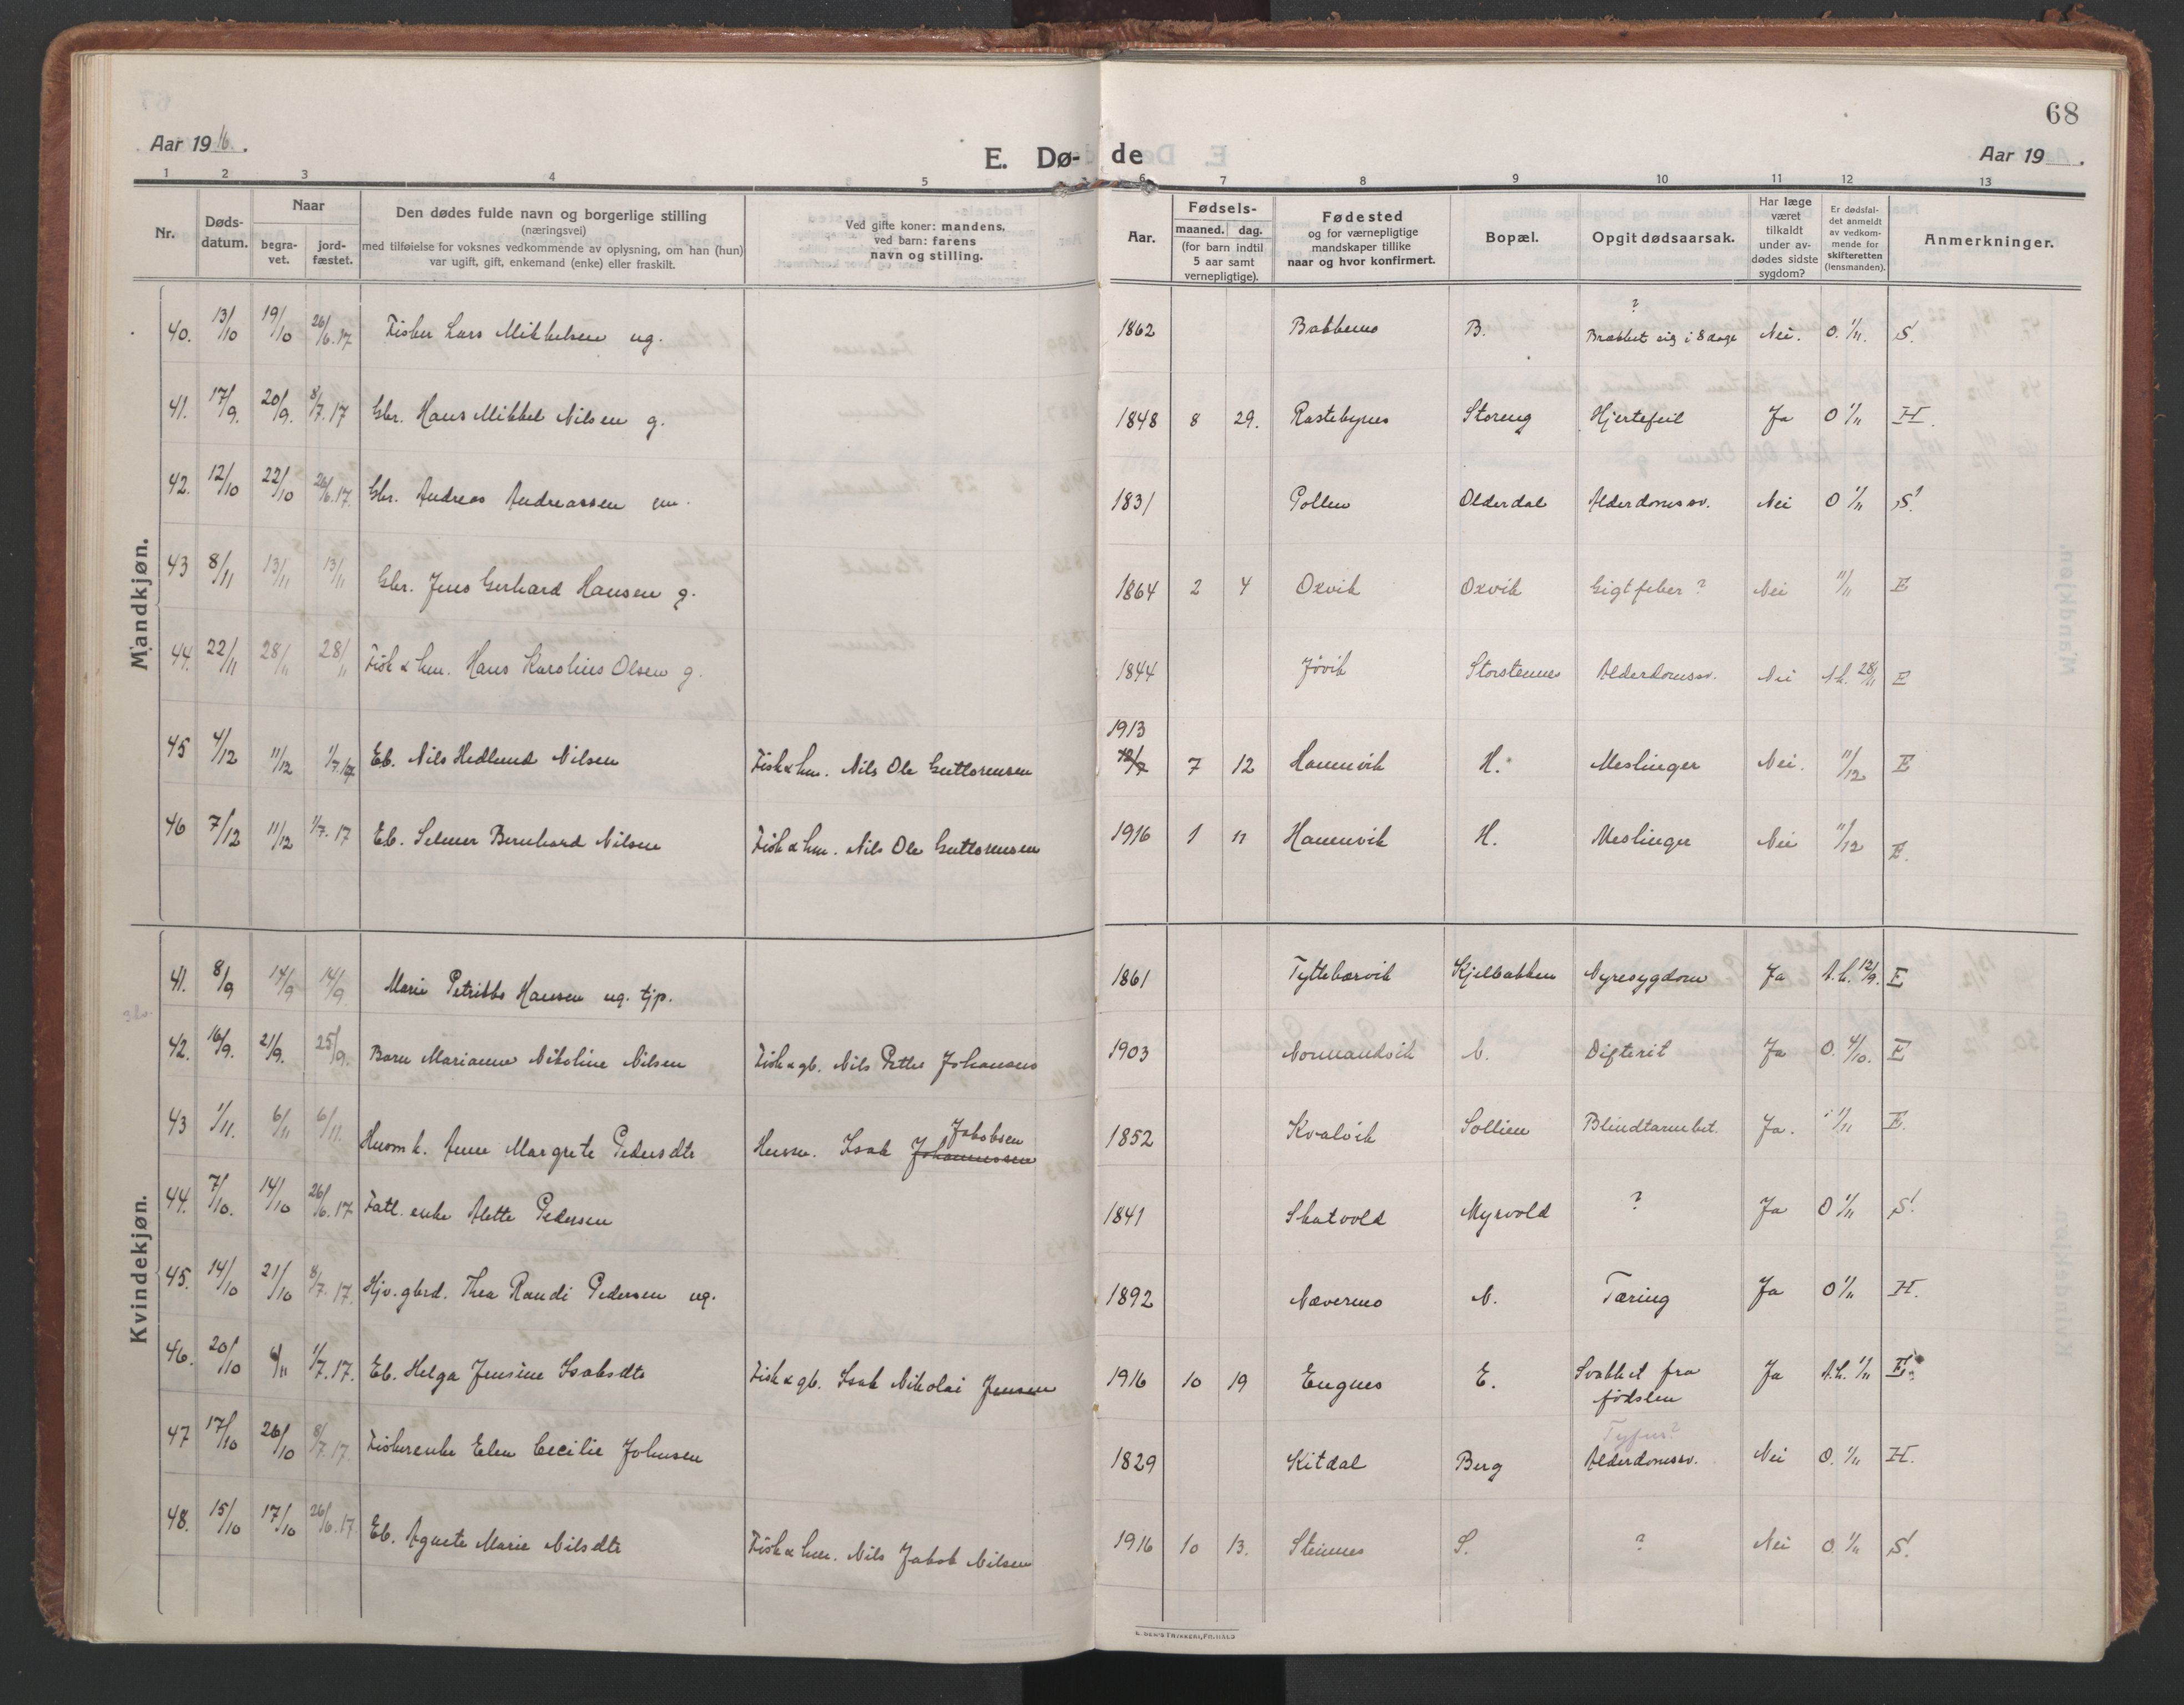 68
Aar 1916.
E. Dø- de
Aar 19 .
1 2 3 4 5 6 7 8 9 10 11 12 13
Nr.
Døds-datum.
Naar
begra-vet.
jord-fæstet.
Den dødes fulde navn og borgerlige stilling
(næringsvei)
med tilføielse for voksnes vedkommende av oplysning, om han (hun)
var ugift, gift, enkemand (enke) eller fraskilt.
Ved gifte koner: mandens,
ved barn: farens
navn og stilling.
Aar.
Fødsels-
maaned. dag.
(for barn indtil
5 aar samt
vernepligtige).
Fødested
og for værnepligtige
mandskaper tillike
naar og hvor konfirmert.
Bopæl.
Opgit dødsaarsak.
Har læge
været
tilkaldt
under av-
dødes sidste
sygdom?
Er dødsfal-
det anmeldt
av vedkom-
mende for
skifteretten
(lensmanden).
Anmerkninger.
Mandkjøn.
40. 13/10 19/10 26/6.17 Fisker Lars Mikkelsen ug. 1862 Bakkemo B. ? Brækket sig i 8 dage Nei. O. 1/11. S.
41. 17/9. 20/9. 8/7.17 Gbr. Hans Mikkel Nilsen g. 1848 8 29. Rastebynes Storeng Hjertefeil Ja O 1/11 H.
42. 12/10 22/10 26/6.17. Gbr. Andreas Andreassen em. 1831 Pollen Olderdal Alderdomssv. Nei O 1/11 S.
43 8/11 13/11 13/11 Gbr. Jens Gerhard Hansen g. 1864 2 4 Oxvik Oxvik Gigtfeber? Nei 11/11 E
44. 22/11 28/11 28/11 Fisk & hm. Hans Karolius Olsen g. 1844 Jøvik Storstennes Alderdomssv. Nei A.h. 28/11 E
45 4/12 11/12 1/7.17 Eb. Nils Hedlund Nilsen Fisk & hm. Nils Ole Guttormsen 1913 12/7 7 12 Hamnvik H. Meslinger Nei. 11/12 E
46 7/12 11/12 1/7.17 Eb. Selmer Bernhard Nilsen Fisk & hm. Nils Ole Guttormsen 1916 1 11 Hamnvik H. Meslinger Nei 11/12 E.
Kvindekjøn.
41. 8/9 14/9 14/9 Marie Petrikke Hansen ug. tjp. 1861 Tyttebærvik Kjelbakken Nyresygdom Ja A.h. 12/9. E
42. 16/9. 21/9. 25/9. Barn Marianne Nikoline Nilsen Fisk & gb. Nils Petter Johansens 1903 Normandvik N. Difterit Ja O. 4/10. E
43 1/11. 6/11 6/11. Husm k. Anne Margrete Pedersdtr Husm. Isak Johannessen Jakobsen 1852 Kvalvik Sollien Blindtarmbet. Ja. 1/11 E.
44. 7/10. 14/10 26/6.17 Fatl. enke Alette Pedersen 1841 Skatvold Myrvold ? Ja O 1/11 S.
45. 14/10 21/10 8/7.17. Hjv. gbrd. Thea Randi Pedersen ug. 1892 Nævernes N. Tæring Ja O 1/11 H.
46. 20/10 4/11 1/7.17. Eb. Helga Jensine Isaksdtr Fisk & gb. Isak Nikolai Jensen 1916 10 19 Engnes E. Svakket fra fødslen Ja A.h. 1/11 E.
47 17/10 26/10 8/7.17. Fiskerenke Elen Cecilie Johnsen 1829 Kitdal Berg Tyfus? Alderdomssv. Nei O. 1/11 H.
48. 15/10 17/10 26/6.17. Eb. Agnete Marie Nilsdtr Fisk & hm. Nils Jakob Nilsen 1916 10 13. Steinnes S. ? Nei O. 1/11 S.